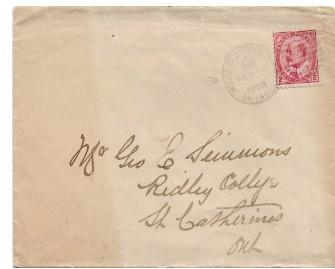 Mr Geo E Simmons
Ridley College
St Catherines
Ont
2 2